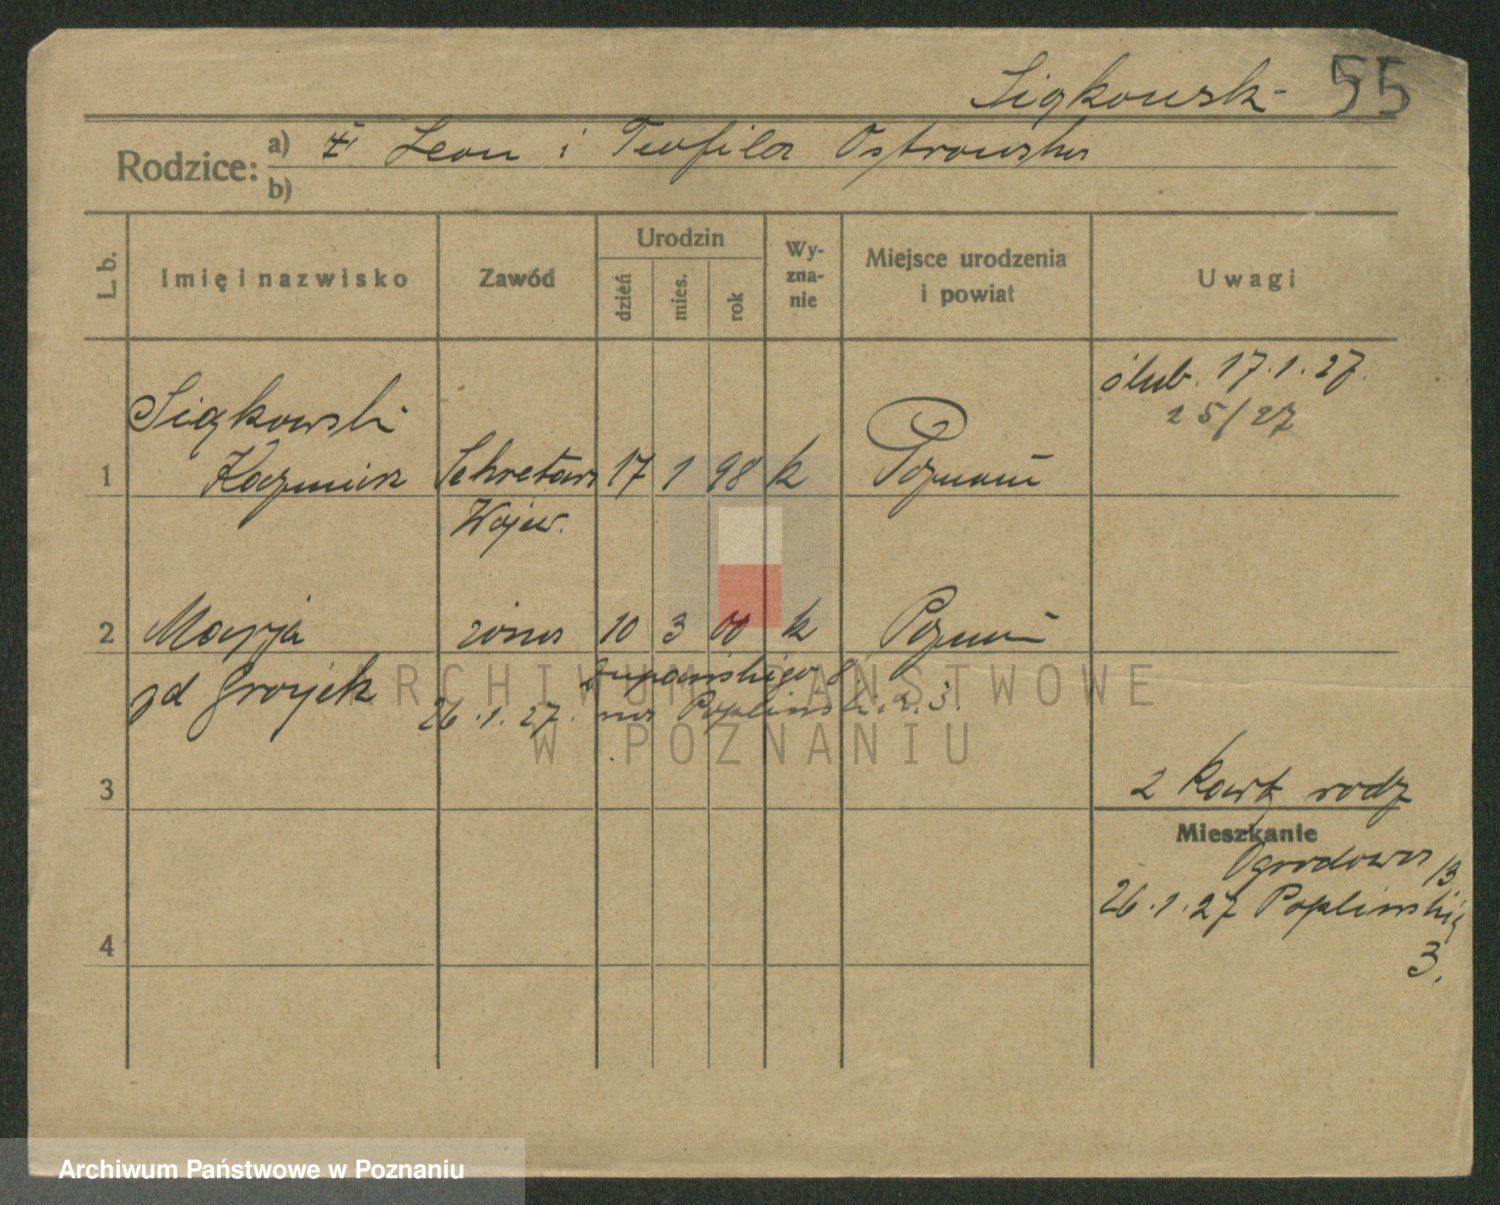 Siąkowski 55
Rodzice: a) Leon i Teofila Ostrowska
b)
L. b. Imię i nazwisko Zawód Urodzin dzień mies. rok Wy-zna-nie Miejsce urodzenia i powiat Uwagi
ślub. 17.1.27.
25/27
Siąkowski
1 Kazimierz Sekretarz 17 1 98 k Poznań
Wojew.
2 Marja żona 10 3 00 k Poznań
zd Grojek Żupańskiego 8
26.1.27. na Poplińskich 3.
3 2 karty rodz
Mieszkanie
Ogrodowa 13
26.1.27 Poplińskich
4 3.
ARCHIWUM PAŃSTWOWE
W POZNANIU
Archiwum Państwowe w Poznaniu